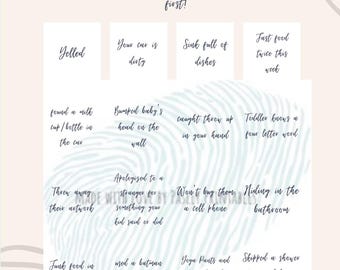 first!
Yelled
Your car is
dirty
Sink full of
dishes
Fast food
twice this
week
found a milk
cup/bottle in
the car
Bumped baby's
head on the
wall
caught throw up
in your hand
Toddler knows a
four letter word
Threw away
their artwork
Apologised to a
stranger for
something your
kid said or did
Won't buy them
a cell phone
Hiding in the
bathroom
MADE WITH LOVE BY
PRINTABLES
Junk food in
used a batman
Yoga Pants and
Skipped a shower